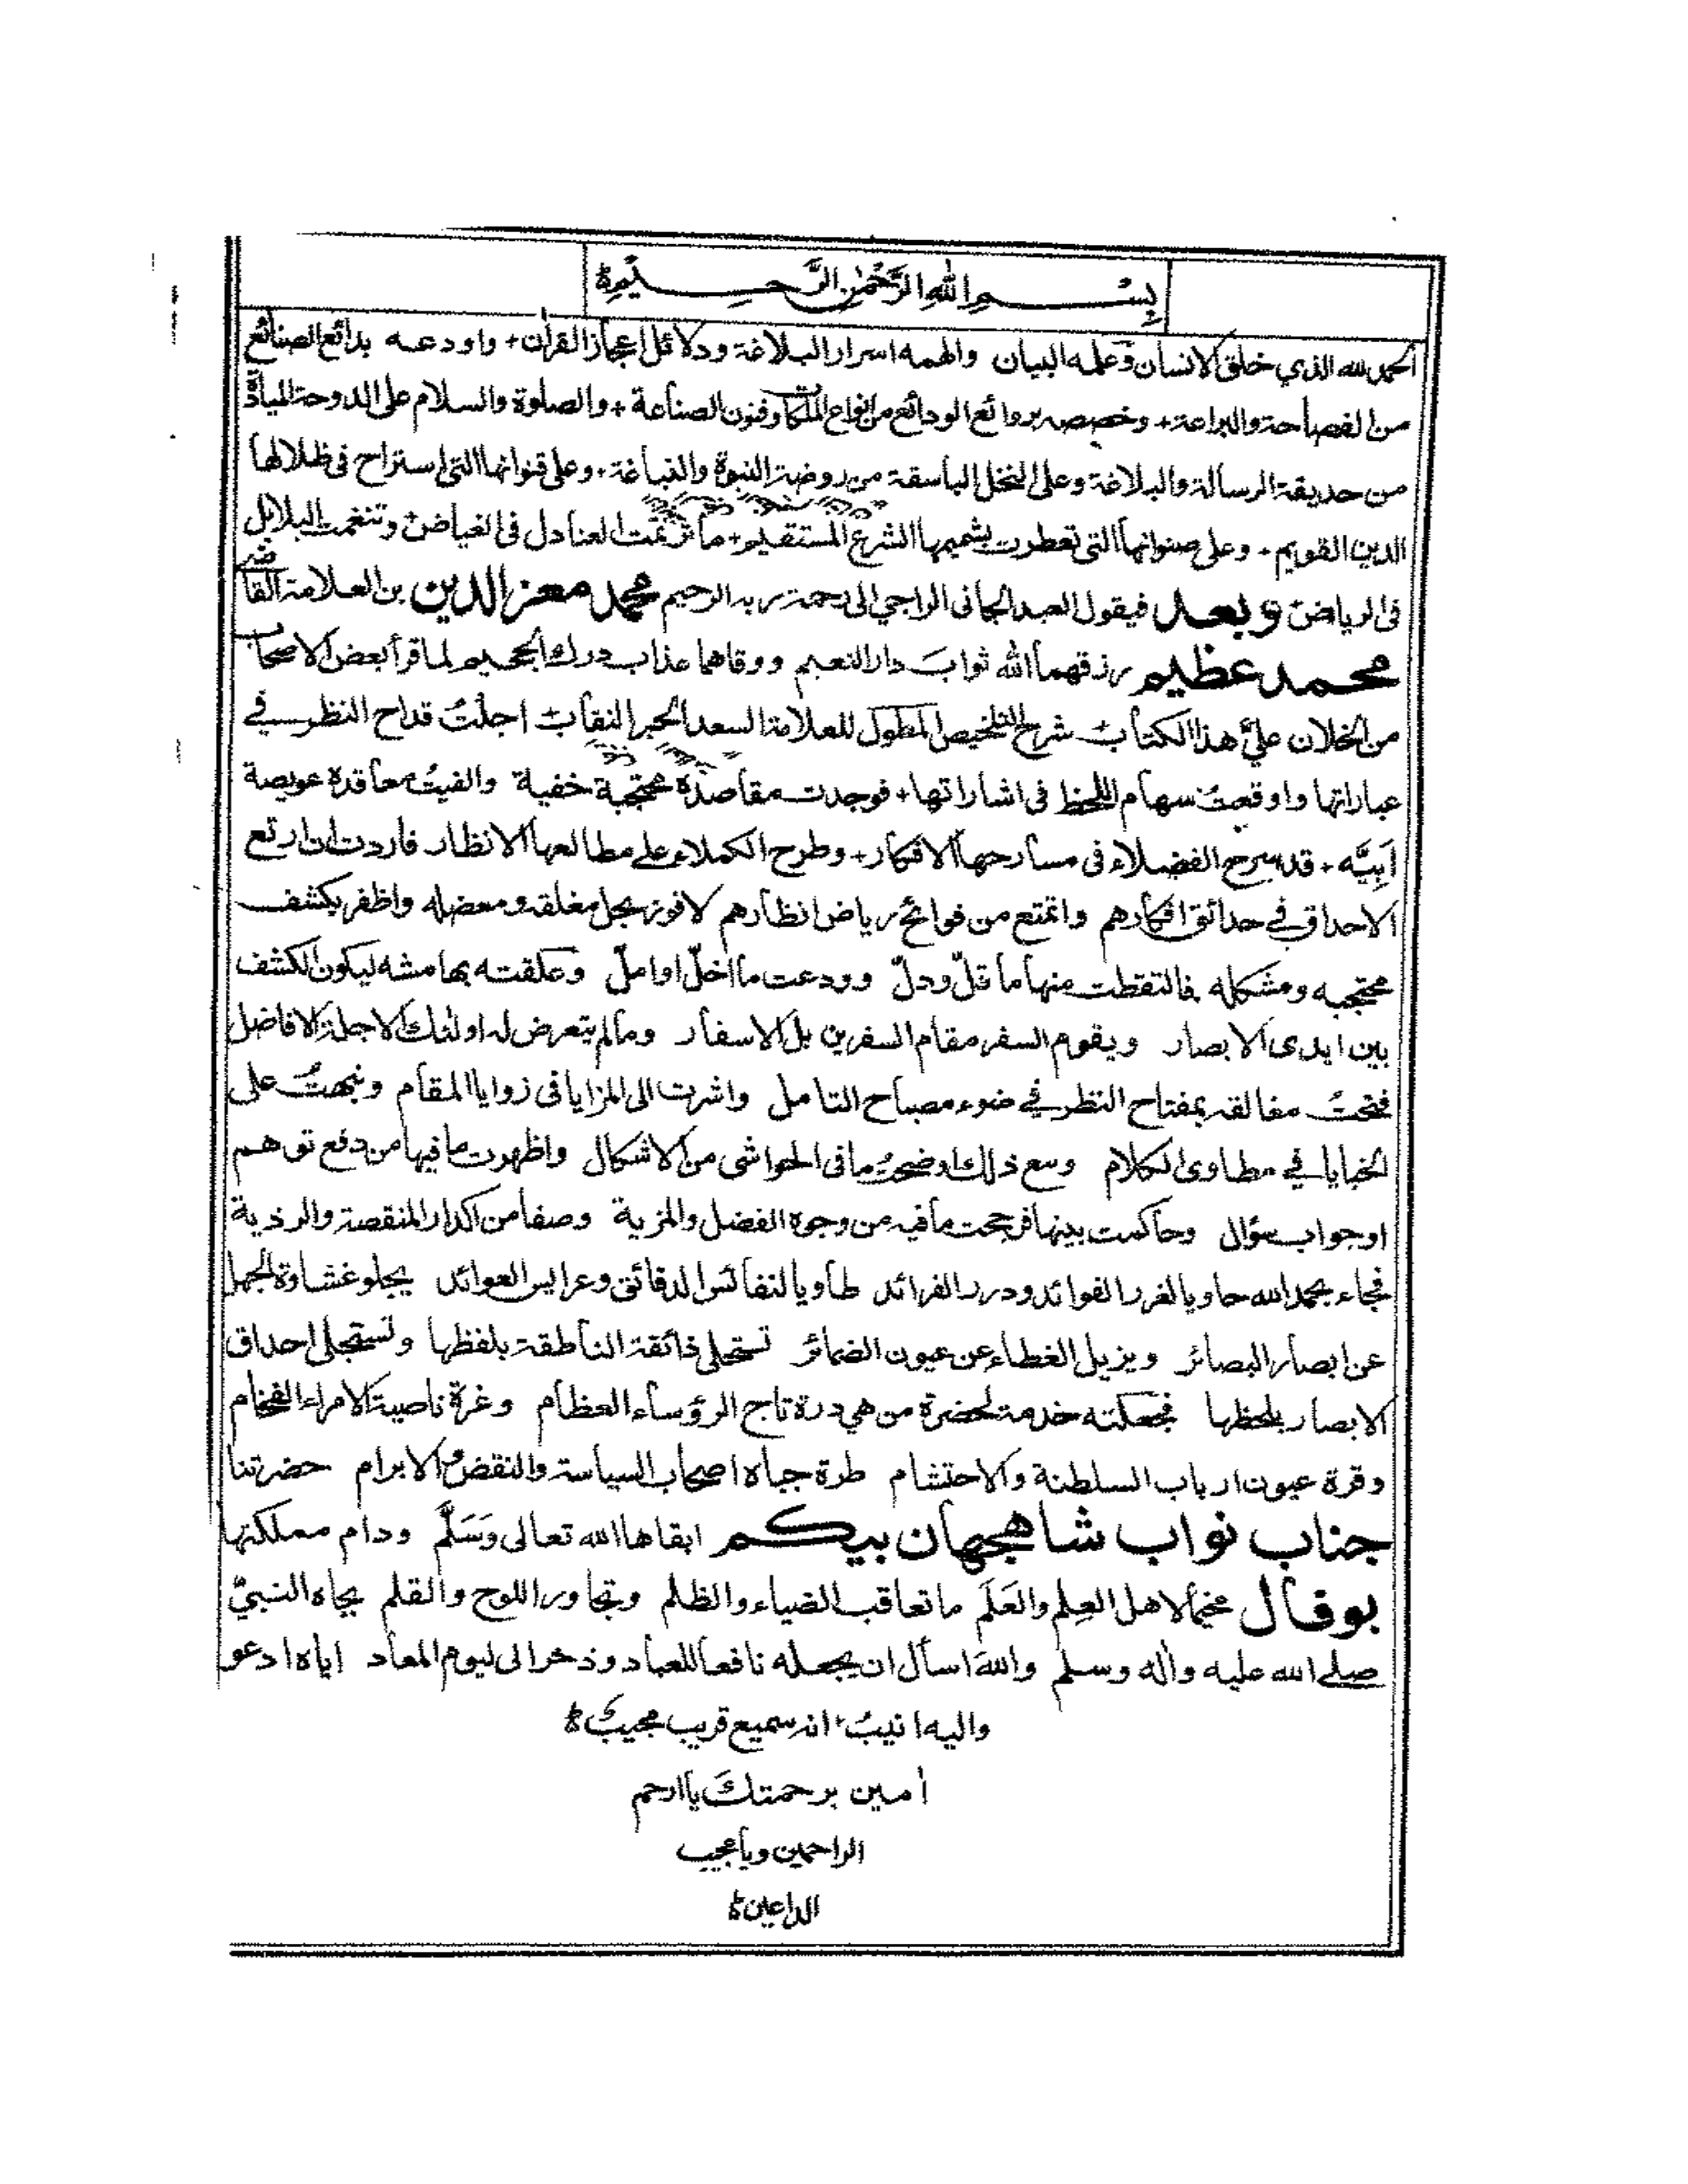 بِسْمِ اللهِ الرَّحْمٰنِ الرَّحِيْمِ
الحمد لله الذي خلق الانسان وعلمه البيان والهمه اسرار البلاغة ودلائل اعجاز القرآن + واودعه بدائع الصنائع
من الفصاحة والبراعة + وخصصه بروائع الودائع من انواع الملكات وفنون الصناعة + والصلوة والسلام على الدوحة الميادة
من حديقة الرسالة والبلاغة وعلى النخل الباسقة من روضة النبوة والنباغة + وعلى قنوانها التي استراح في ظلالها
الدين القويم + وعلى صنوانها التي تعطرت بشميمها الشرع المستقيم + ما ترنمت العنادل في الغياض وتنغمت البلابل
في الرياض وبعد فيقول العبد الجاني الراجي الى رحمة ربه الرحيم محمد معز الدين بن العلامة القاضي
محمد عظيم رزقهما الله ثوابَ دار النعيم ووقاهما عذاب درك الجحيم لما قرأ بعض الاصحاب
من الخلان عليَّ هذا الكتاب شرح التلخيص المطول للعلامة السعد الحبر النقاب + اجلتُ قداح النظر في
عباراتها واوقعتُ سهام اللحظ في اشاراتها + فوجدت مقاصده محتجبة خفية والفيتُ معاقده عويصة
اَبِيَّه + قد سرح الفضلاء في مسارحها الافكار + وطرح الكملاء على مطالعها الانظار فاردت ان ارتع
الاحداق في حدائق افكارهم واتمتع من فوائح رياض انظارهم لافوز بحل مغلقه ومعضله واظفر بكشف
محتجبه ومشكله فالتقطت منها ما قلّ ودلّ وودعت ما اخلّ او املّ وعلقته بهامشه ليكون الكشف
بين ايدى الابصار ويقوم السفر مقام السفرين بل الاسفار وما لم يتعرض له اولئك الاجلة الافاضل
فتحتُ مغالقه بمفتاح النظر في ضوء مصباح التامل واشرت الى المزايا في زوايا المقام ونبهتُ على
الخبايا في مطاوى الكلام ومع ذلك اوضحتُ ما في الحواشي من الاشكال واظهرت ما فيها من دفع توهم
او جواب سؤال وحاكمت بينها فرجحت ما فيه من وجوه الفضل والمزية وصفا من اكدار المنقصة والرذية
فجاء بحمد الله حاويا لغرر الفوائد ودرر الفرائد طاويا لنفائس الدقائق وعرايس العوائد يجلو غشاوة الجهل
عن ابصار البصائر ويزيل الغطاء عن عيون الضمائر تستحلى ذائقة الناطقة بلفظها وتستجلى احداق
الابصار بلحظها فجعلته خدمة لحضرة من هي درة تاج الرؤساء العظام وغرة ناصية الامراء الفخام
وقرة عيون ارباب السلطنة والاحتشام طرة جباه اصحاب السياسة والنقض والابرام حضرتنا
جناب نواب شاهجهان بيكم ابقاها الله تعالى وَسَلَّم ودام مملكتها
بوفال مخيما لاهل العِلم والعَلَم ما تعاقب الضياء والظلم وتجاور اللوح والقلم بجاه النبيّ
صلى الله عليه وآله وسلم واللهَ اسأل ان يجعله نافعا للعباد وذخرا لى ليوم المعاد اياه ادعو
واليه انيبُ انه سميع قريب مجيب
آمين برحمتكَ يا ارحم
الراحمين ويا مجيب
الداعين